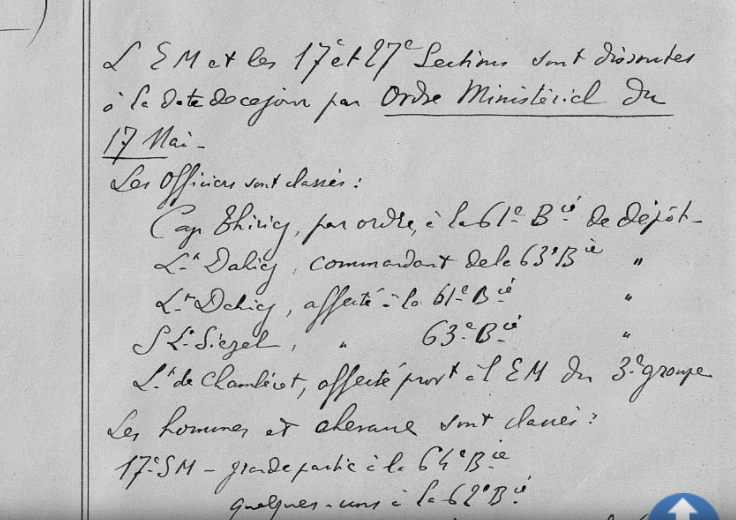 L'EM et les 17e et 27e Sections sont dissoutes
à la date de ce jour par Ordre Ministériel du
17 Mai -
Les Officiers sont classés :
Cap Thiricy, par ordre, à la 61e Bie de dépôt -
Lnt Dahicy, commandant de la 63e Bie "
Lnt Dehicy, affecté à la 61e Bie "
S Lt Siegel, " 63e Bie "
Lnt de Chambéret, affecté provt à l'EM du 3e groupe
Les hommes et chevaux sont classés :
17e SM - grande partie à la 64e Bie
quelques-uns à la 62e Bie